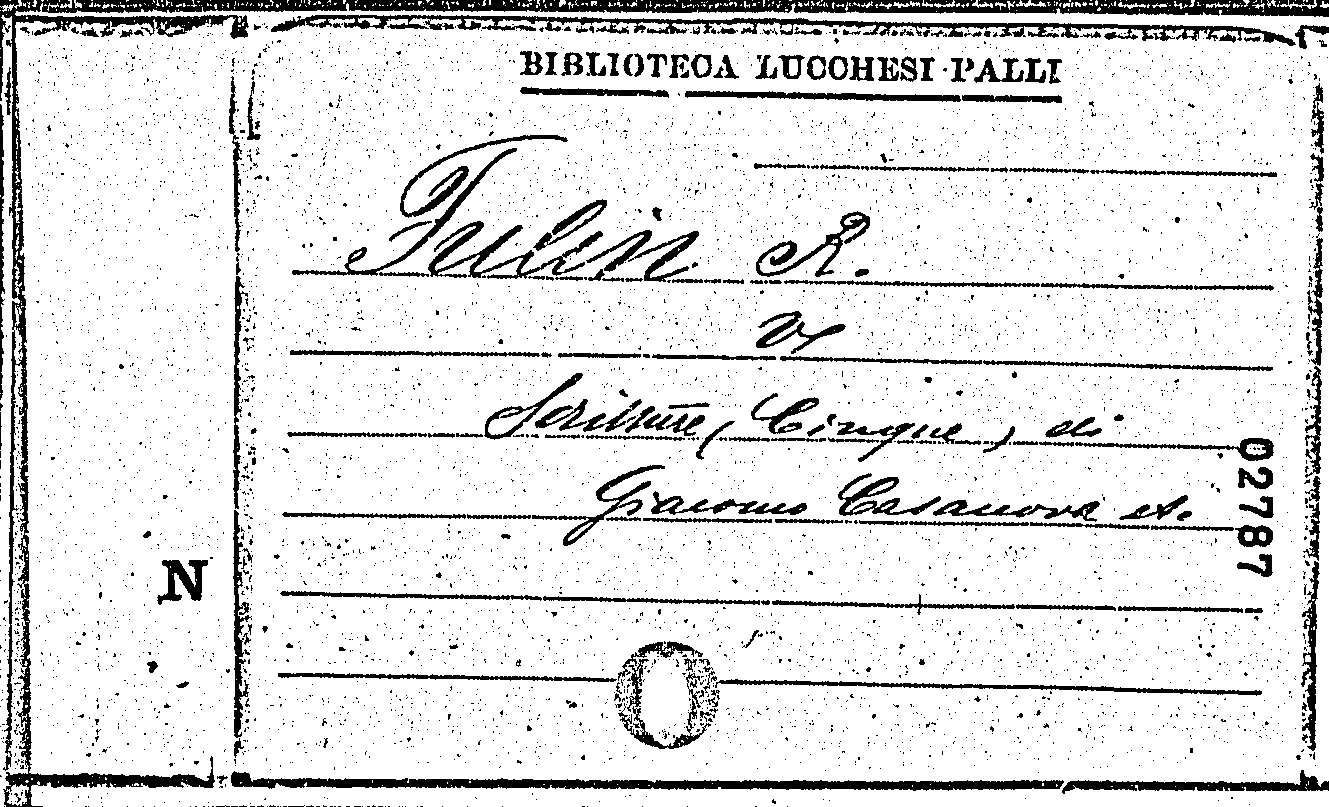 BIBLIOTECA LUCCHESI-PALLI
Fulin R.
V
Scritture (Cinque) di
Giacomo Casanova et.
02787
N